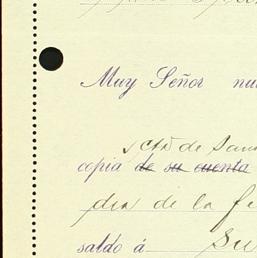 Muy Señor nu
de San
copia de su cuenta
dia de la fe
saldo á su